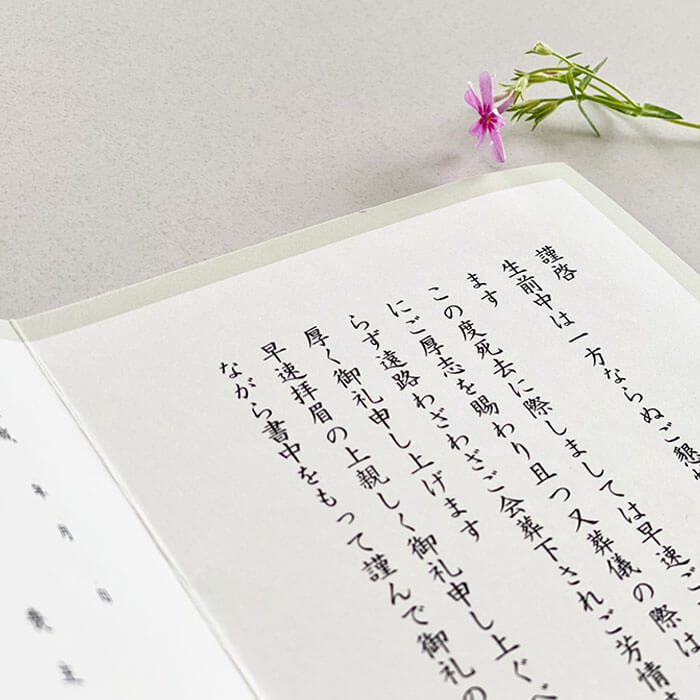 謹啓
生前中は一方ならぬご懇
ます
この度死去に際しましては早速ご
にご厚志を賜わり且つ又葬儀の際は
らず遠路わざわざご会葬下されご芳情
厚く御礼申し上げます
早速拝眉の上親しく御礼申し上ぐべ
ながら書中をもって謹んで御礼の